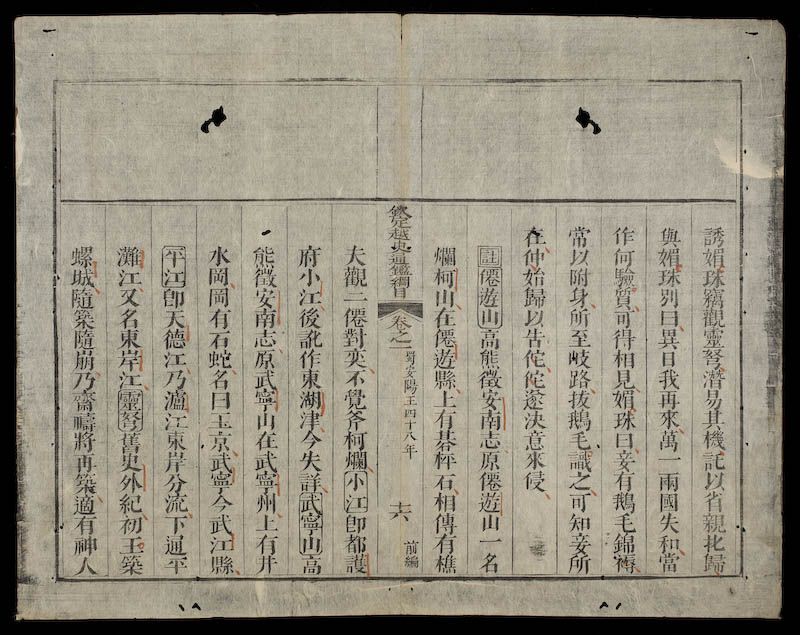 誘媚珠竊觀靈弩潛易其機託以省親北歸
與媚珠別曰異日我再來萬一兩國失和當
作何驗質可得相見媚珠曰妾有鵝毛錦褥
常以附身所至岐路拔鵝毛識之可知妾所
在仲始歸以告佗佗遂決意來侵
註僊遊山高熊徵安南志原僊遊山一名
爛柯山在僊遊縣上有棊枰石相傳有樵
欽定越史通鑑綱目 卷之一 蜀安陽王四十八年 十六 前編
夫觀二僊對奕不覺斧柯爛小江卽都護
府小江後訛作東湖津今失詳武寧山高
熊徵安南志原武寧山在武寧州上有井
水岡岡有石蛇名曰玉京武寧今武江縣
平江卽天德江乃瀘江東岸分流下通平
灘江又名東岸江靈弩舊史外紀初王築
螺城隨築隨崩乃齋禱將再築適有神人